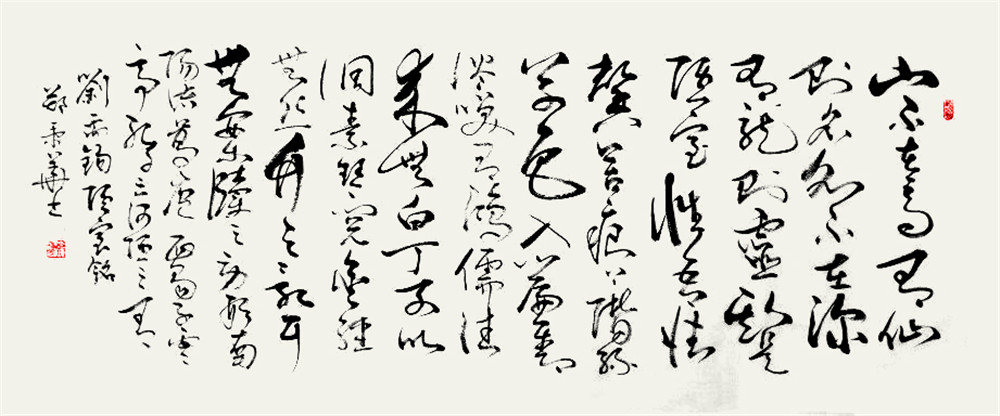 山不在高有仙
則名水不在深
有龍則靈斯是
陋室惟吾德
馨苔痕上階綠
草色入簾青
談笑有鴻儒往
來無白丁可以
調素琴閱金經
無絲竹之亂耳
無案牘之勞形南
陽諸葛廬西蜀子雲
亭孔子云何陋之有
劉禹錫陋室銘
鄭